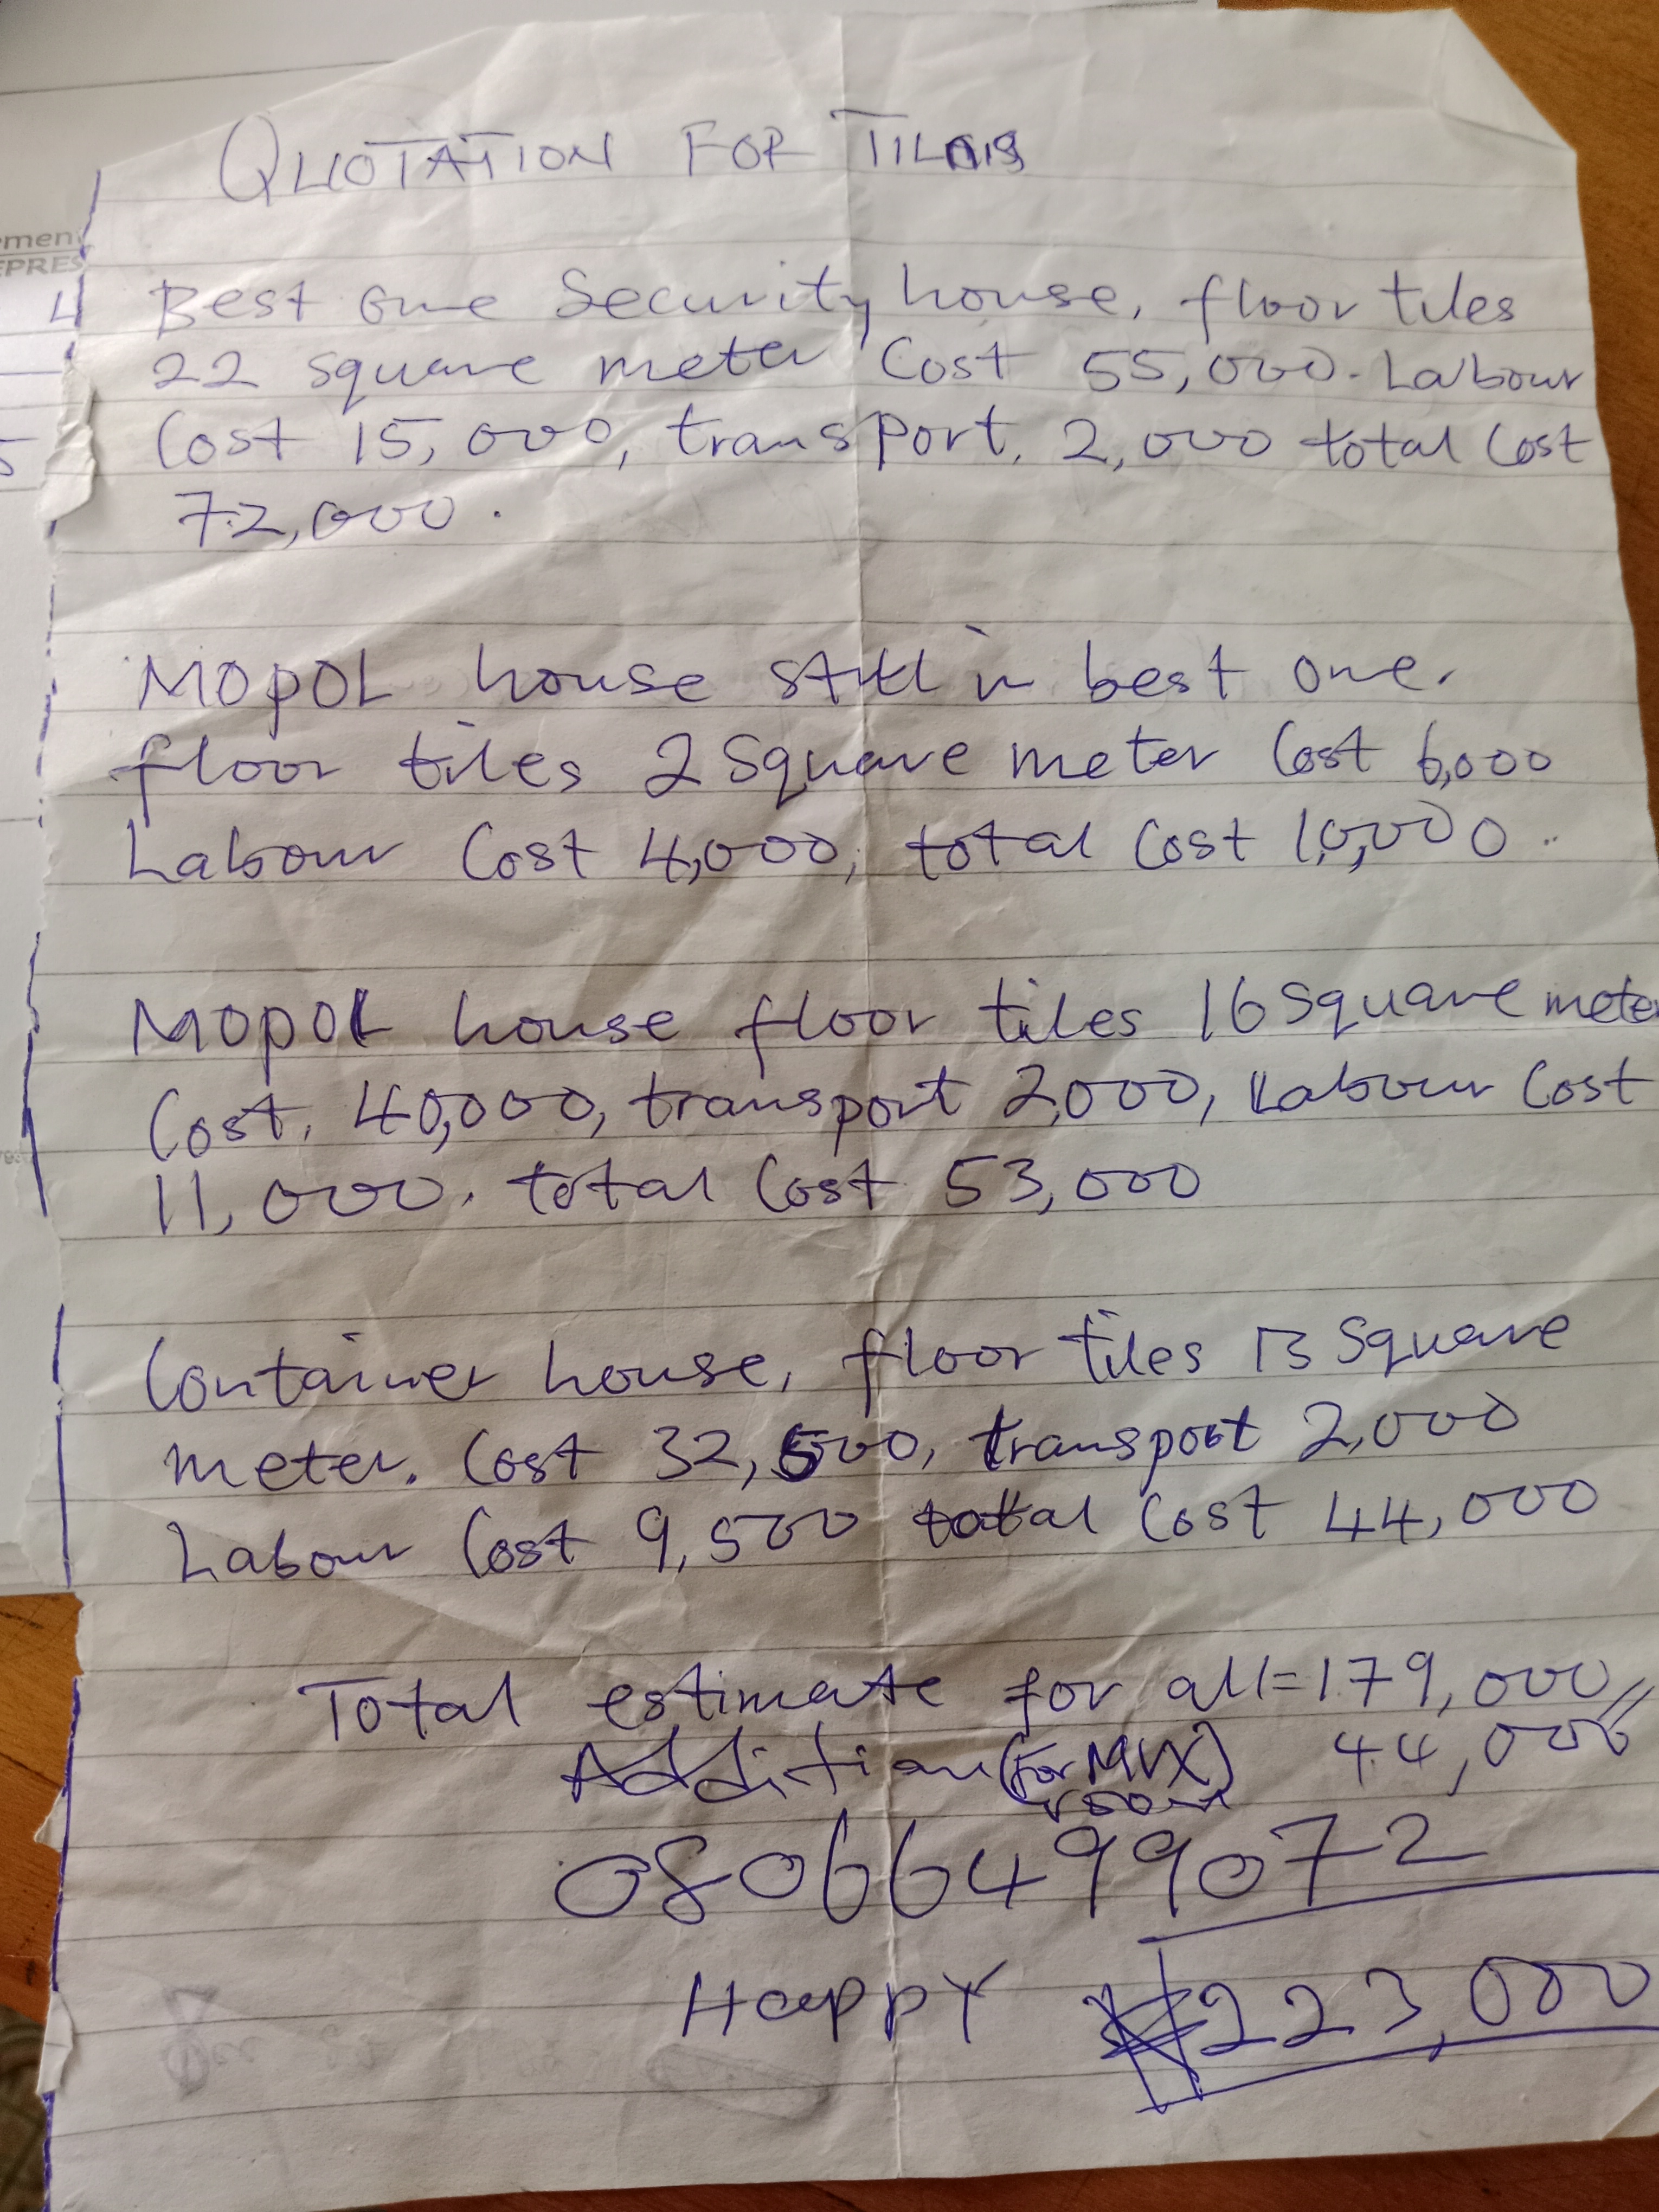 QUOTATION FOR
Best one Security house, floor tiles
22 square meter Cost 55,000. Labour
Cost 15,000, transport, 2,000 total Cost
72,000.
MOPOL house still in best one.
floor tiles 2 Square meter Cost 6,000
Labour Cost 4,000, total Cost 10,000.
MOPOL house floor tiles 16 Square meter
Cost, 40,000, transport 2,000, Labour Cost
11,000. total Cost 53,000
Container house, floor tiles 13 Square
meter. Cost 32,500, transport 2,000
Labour Cost 9,500 total Cost 44,000
Total estimate for all = 179,000
Addition (For MVX) 44,000
room
08066499072
Happy ₦223,000